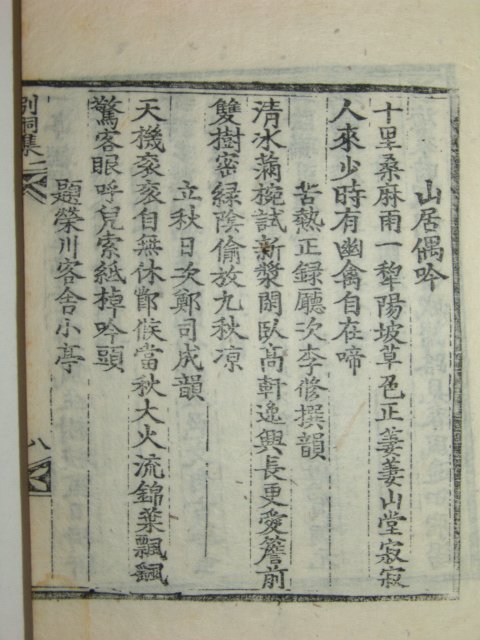 山居偶吟
十里桑麻雨一犂陽坡草色正萋萋山堂寂寂
人來少時有幽禽自在啼
苦熱正録廳次李修撰韻
清水蒲椀試新漿閑臥高軒逸興長更愛簷前
雙樹密綠陰偷放九秋凉
立秋日次鄭司成韻
天機衮衮自無休鄙候當秋大火流錦葉飄飄
驚客眼呼兒索紙掉吟頭
題榮川客舍小亭
別洞集二
八